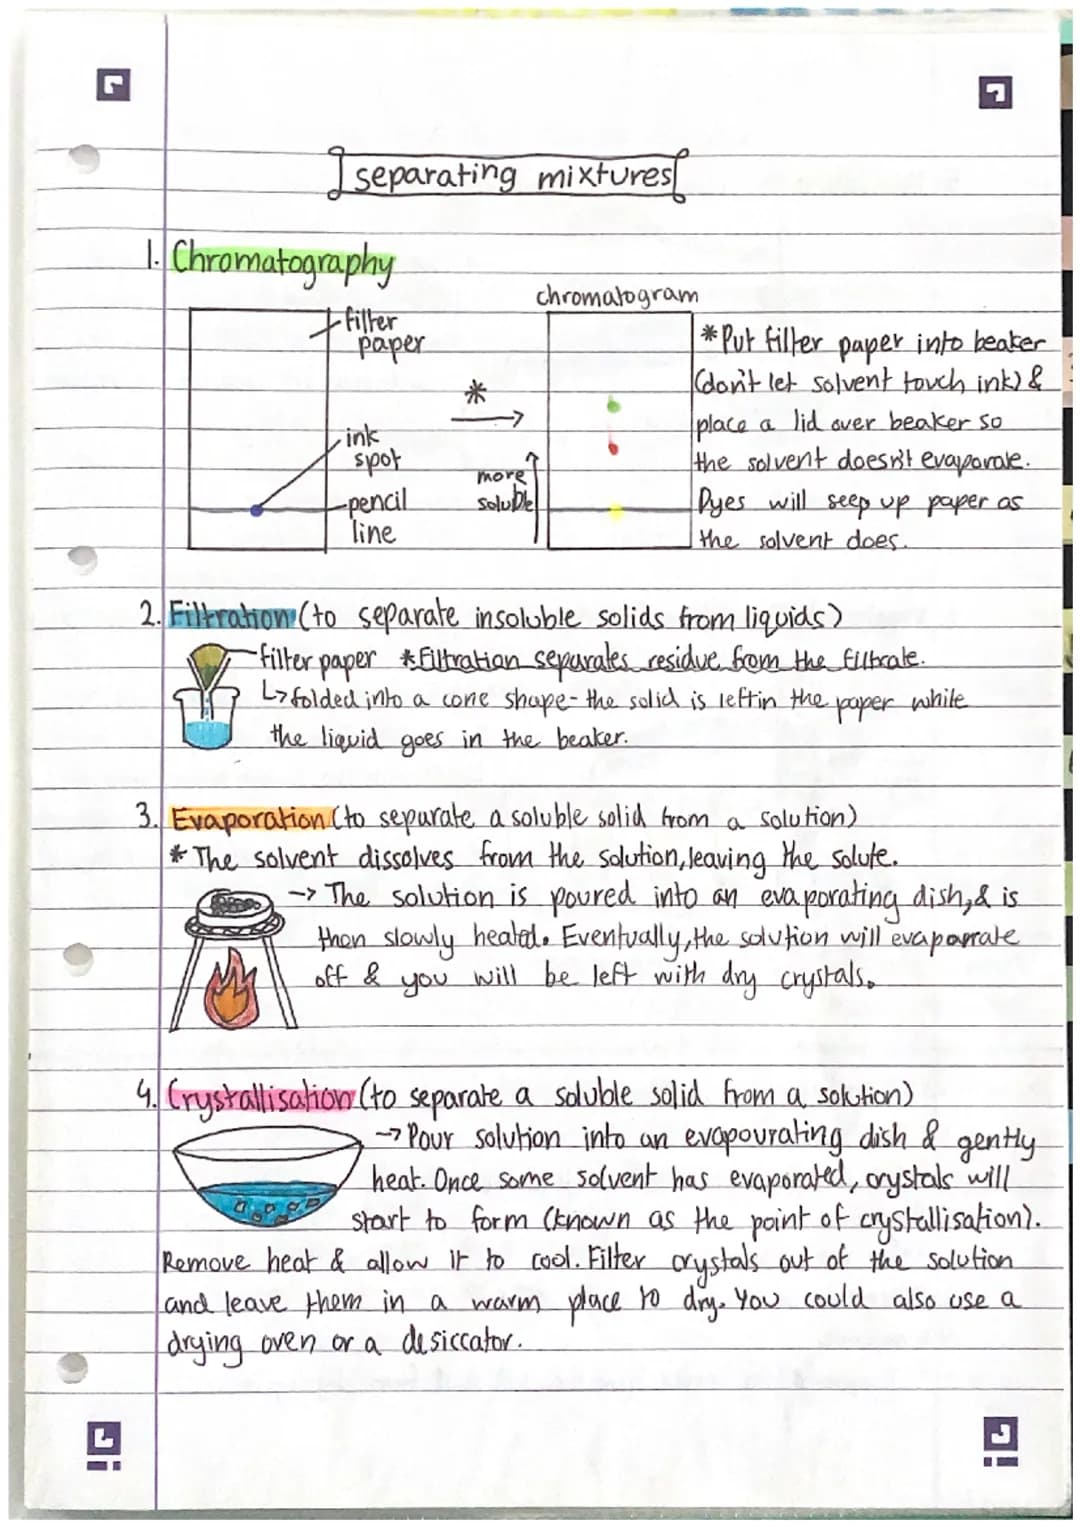 separating mixtures
1. Chromatography
filter
paper
ink
spot
pencil
line
*
chromatogram
more
soluble
*Put filter paper into beaker
(don't let solvent touch ink) &
place a lid over beaker so
the solvent doesn't evaporate.
Dyes will seep up paper as
the solvent does.
2. Filtration (to separate insoluble solids from liquids)
filter paper *Filtration separates residue from the filtrate.
↳ folded into a cone shape- the solid is left in the paper while
the liquid goes in the beaker.
3. Evaporation (to separate a soluble solid from a solution)
* The solvent dissolves from the solution, leaving the solute.
-> The solution is poured into an evaporating dish, & is
then slowly heated. Eventually, the solution will evaporrate
off & you will be left with dry crystals.
4. Crystallisation (to separate a soluble solid from a solution)
-> Pour solution into an evapourating dish & gently
heat. Once some solvent has evaporated, crystals will
start to form (known as the point of crystallisation).
Remove heat & allow it to cool. Filter crystals out of the solution
and leave them in a warm place to dry. You could also use a
drying oven or a desiccator.